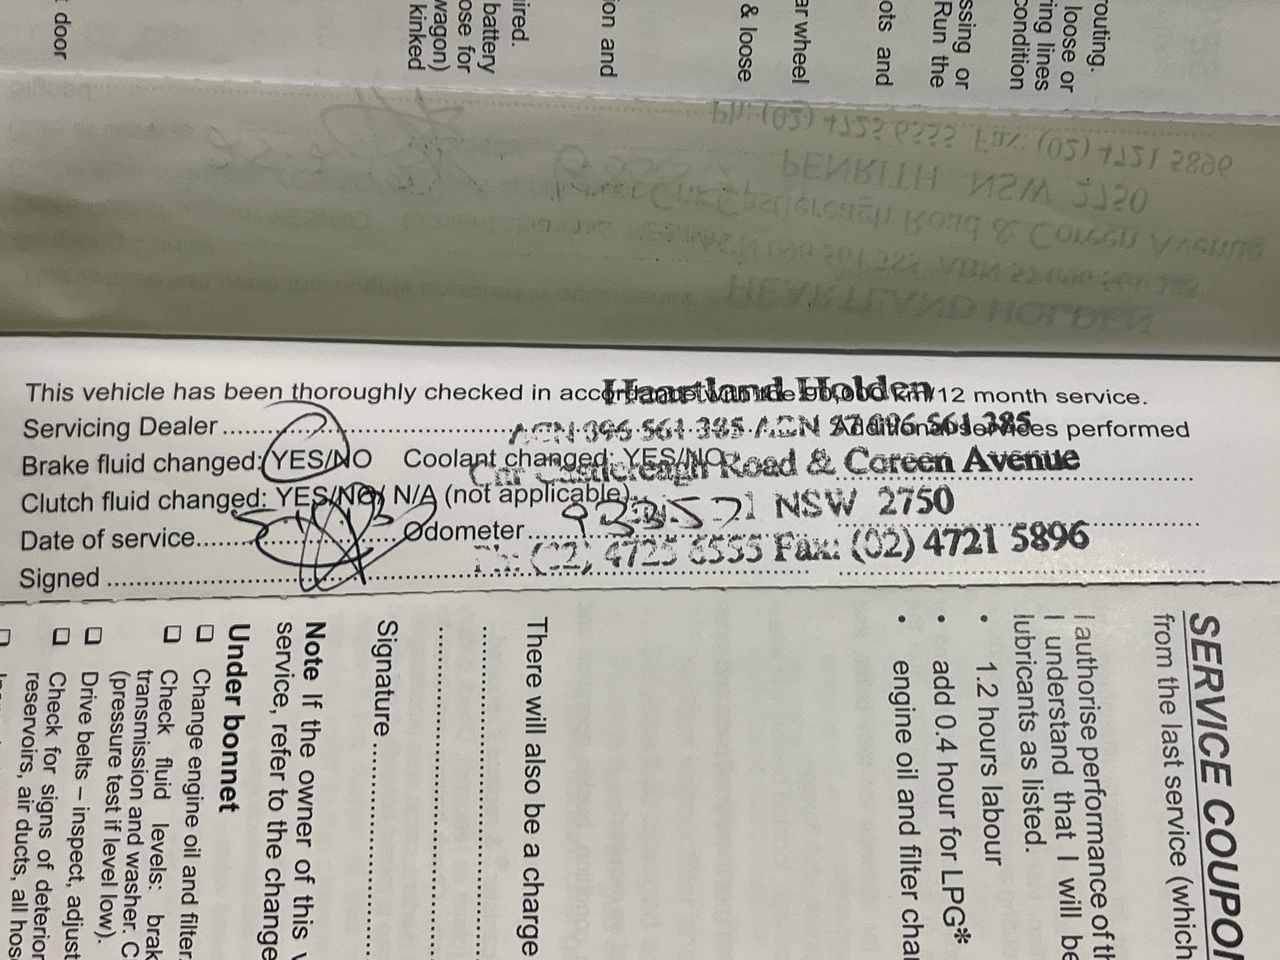 t door
kinked
wagon)
ose for
battery
ired.
ion and
& loose
ar wheel
ots and
Run the
ssing or
condition
ring lines
loose or
routing.
Ph: (02) 4723 6333 Fax: (02) 4721 5896
PENRITH NSW 2750
Castlereagh Road & Coreen Avenue
HEARTLAND HOLDEN
This vehicle has been thoroughly checked in 90,000 km/12 month service.
Heartland Holden
Servicing Dealer
Additional services performed
Brake fluid changed: YES/NO Coolant changed: YES/NO
Cnr Castlereagh Road & Coreen Avenue
Clutch fluid changed: YES/NO/ N/A (not applicable)
NSW 2750
Date of service Odometer
Fax: (02) 4721 5896
Signed
SERVICE COUPON
from the last service (which
I authorise performance of th
I understand that I will be
lubricants as listed.
• 1.2 hours labour
• add 0.4 hour for LPG*
• engine oil and filter char
There will also be a charge
Signature
Note If the owner of this v
service, refer to the change
Under bonnet
Change engine oil and filter.
Check fluid levels: brak
transmission and washer. C
(pressure test if level low).
Drive belts – inspect, adjust
Check for signs of deterior
reservoirs, air ducts, all hos